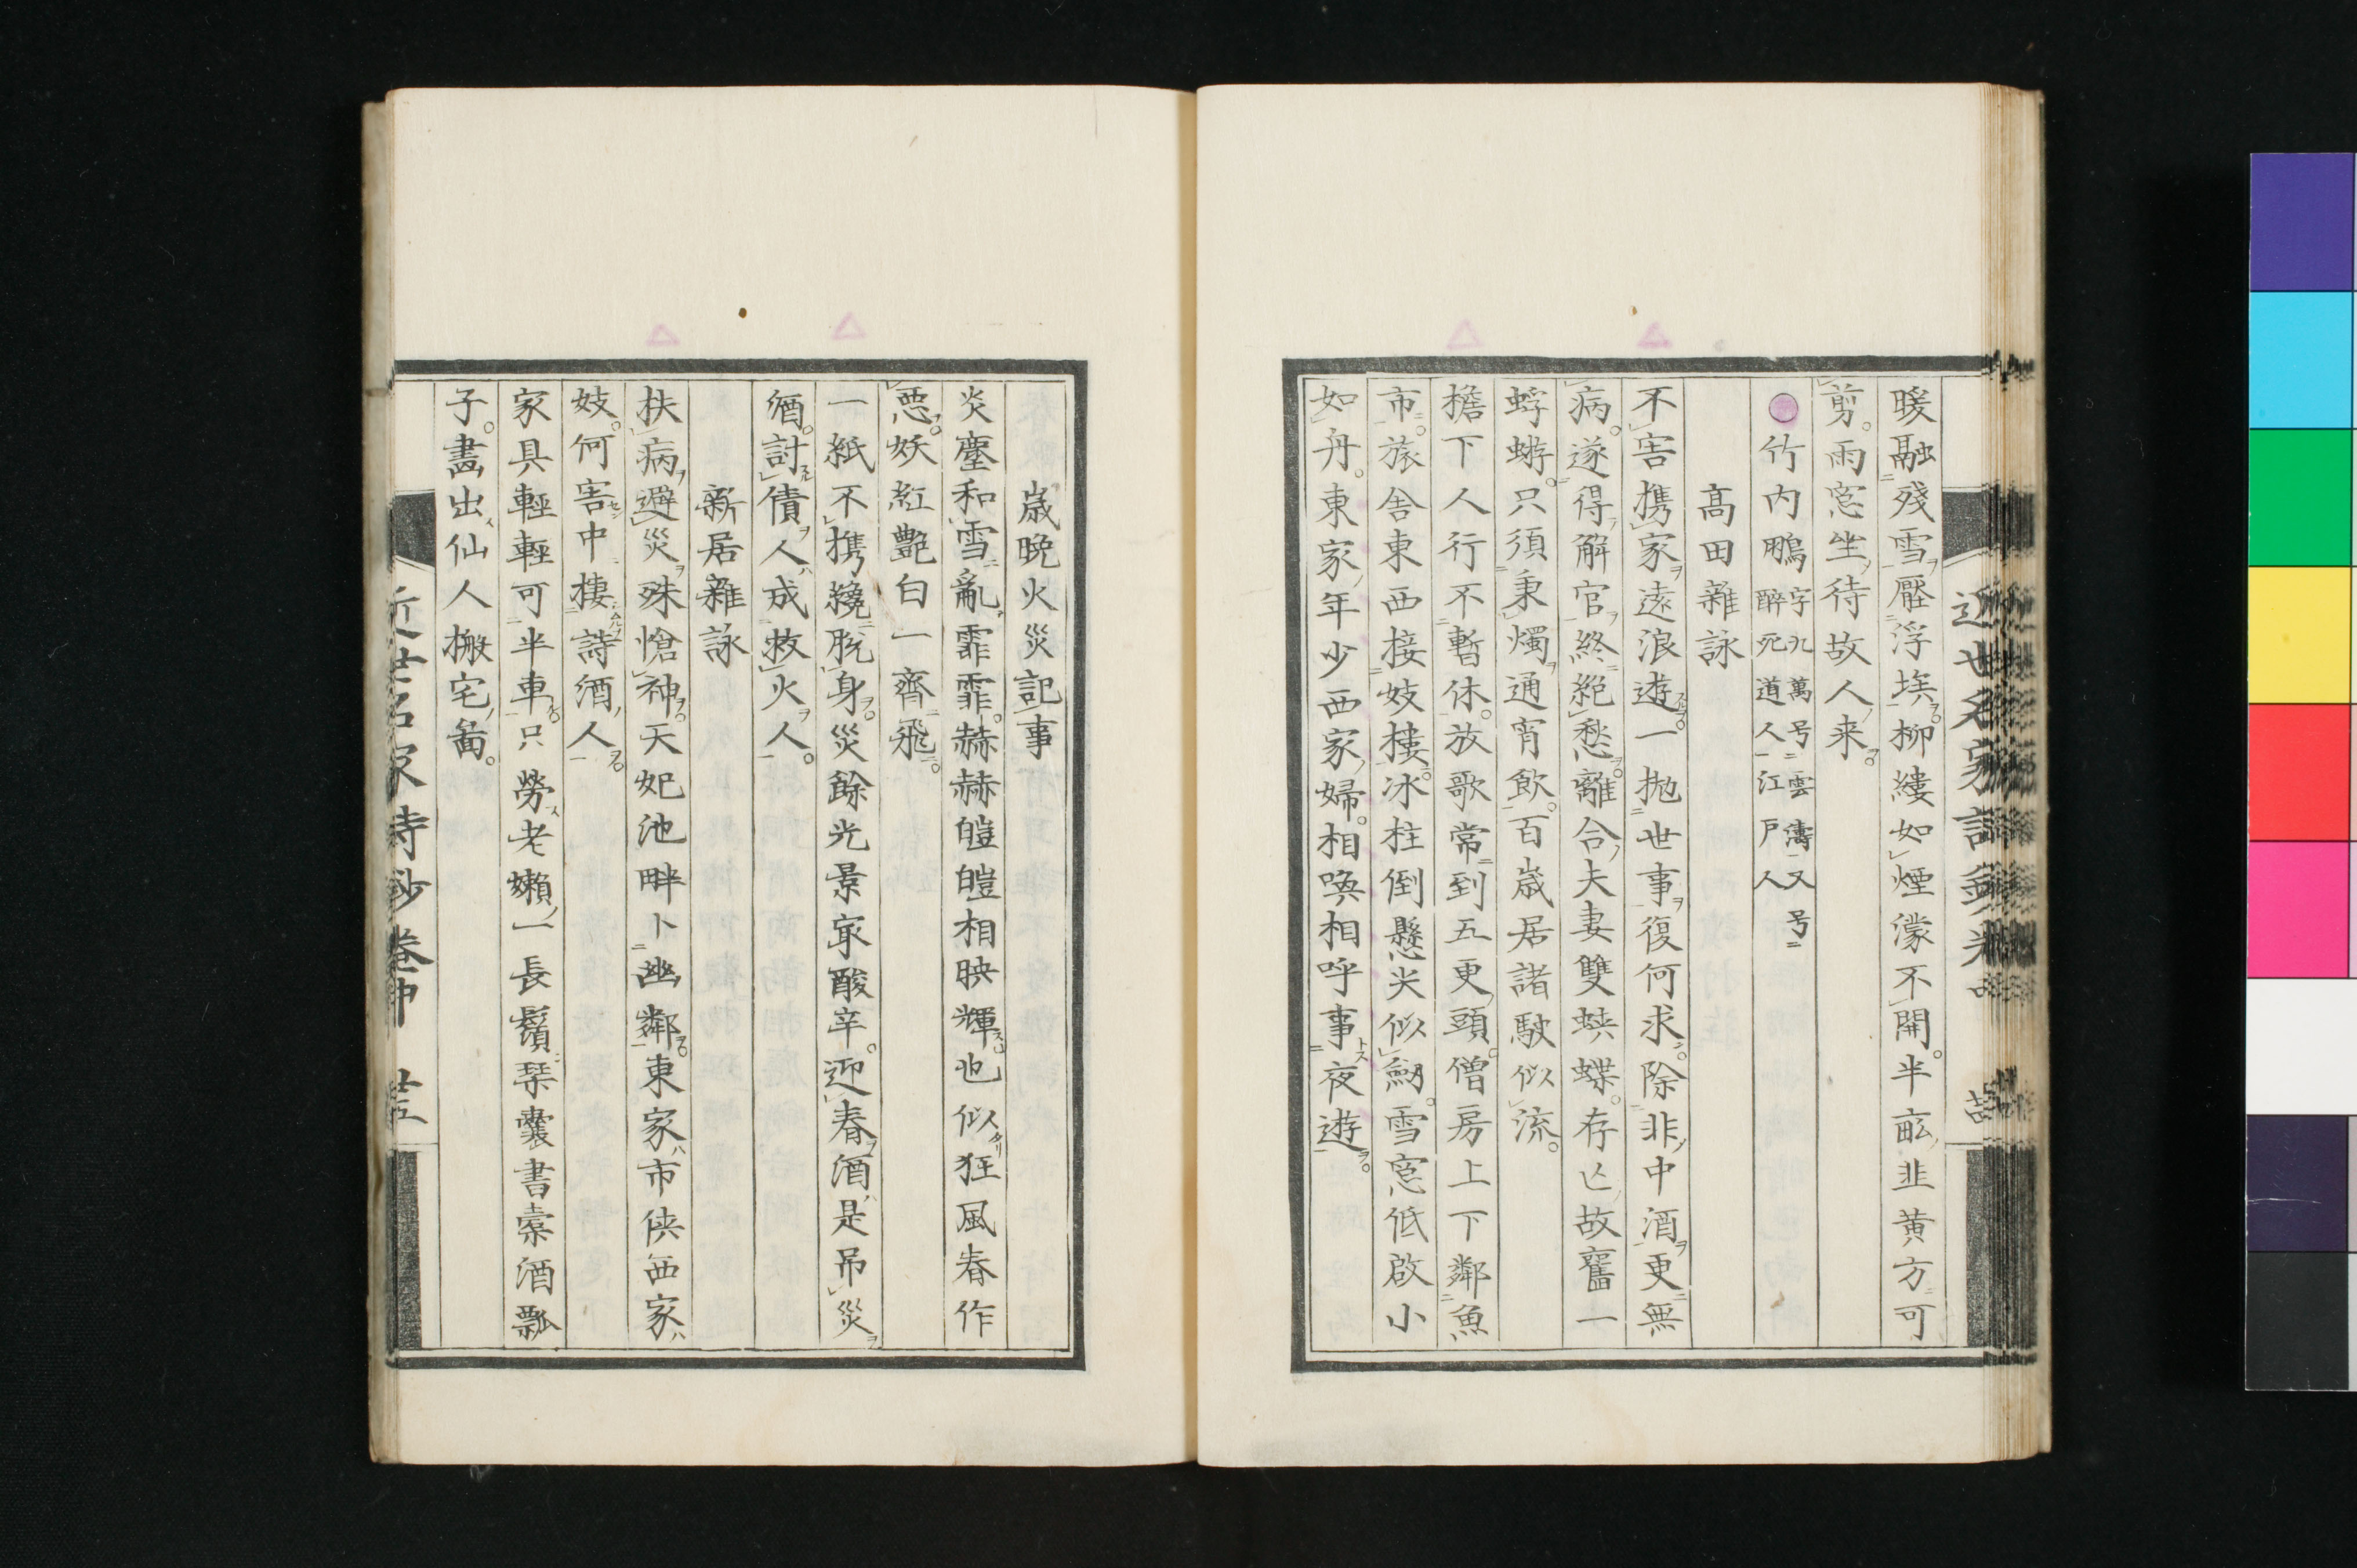 暖融殘雪壓浮埃柳縷如煙濛不開半畝韭黄方可
剪雨窓坐待故人来
竹内鵬字九萬号雲濤又号醉死道人江戸人
髙田雜詠
不害携家遠浪遊一抛世事復何求除非中酒更無
病遂得解官終絶愁離合夫妻雙蛺蝶存亡故舊一
蜉蝣只須秉燭通宵飲百歳居諸駛似流
檐下人行不暫休放歌常到五更頭僧房上下鄰魚
市旅舎東西接妓樓冰柱倒懸尖似劒雪窓低啟小
如舟東家年少西家婦相喚相呼事夜遊
歳晩火災記事
炎塵和雪亂霏霏赫赫皚皚相映輝也似狂風春作
悪妖紅艶白一齊飛
一紙不携纔脱身災餘光景㝡酸辛迎春酒是吊災
酒討債人成救火人
新居雜詠
扶病避災殊愴神天妃池畔卜幽鄰東家市俠西家
妓何害中樓詩酒人
家具輕輕可半車只勞老嬾一長鬚琴囊書槖酒瓢
子畫出仙人搬宅啚
近世名家詩鈔巻中